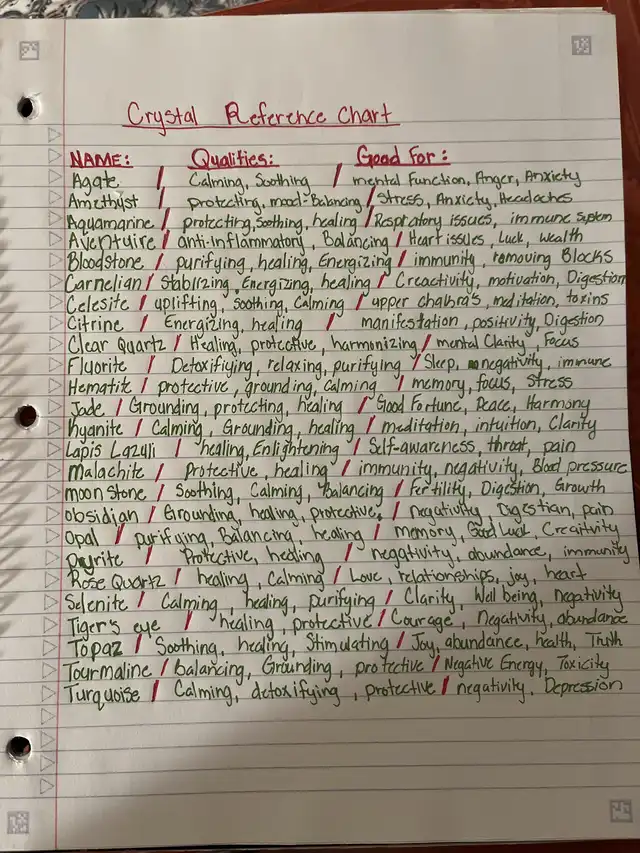 Crystal Reference Chart
NAME: Qualities: Good For:
Agate / Calming, Soothing / mental Function, Anger, Anxiety
Amethyst / protecting, mood-Balancing / Stress, Anxiety, Headaches
Aquamarine / protecting, Soothing, healing / Respiratory issues, immune System
Aventuire / anti-inflammatory, Balancing / Heart issues, Luck, Wealth
Bloodstone / purifying, healing, Energizing / immunity, removing Blocks
Carnelian / Stabilizing, Energizing, healing / Creactivity, motivation, Digestion
Celesite / uplifting, soothing, Calming / upper chakra's, meditation, toxins
Citrine / Energizing, healing / manifestation, positivity, Digestion
Clear Quartz / Healing, protective, harmonizing / mental Clarity, Focus
Fluorite / Detoxifiying, relaxing, purifying / Sleep, negativity, immune
Hematite / protective, grounding, calming / memory, focus, Stress
Jade / Grounding, protecting, healing / Good Fortune, Peace, Harmony
Kyanite / Calming, Grounding, healing / meditation, intuition, Clarity
Lapis Lazuli / healing, Enlightening / Self-awareness, throat, pain
Malachite / Protective, healing / immunity, negativity, Blood pressure
moon Stone / Soothing, Calming, Balancing / Fertility, Digestion, Growth
obsidian / Grounding, healing, protective, / negativity, Digestian, pain
Opal / purifying, Balancing, healing / memory, Good Luck, Creaitvity
Pyrite / Protective, healing / negagtivity, abundance, immunity
Rose Quartz / healing, Calming / Love, relationships, joy, heart
Selenite / Calming, healing, purifying / Clarity, Well being, negativity
Tiger's eye / healing, protective / Courage, Negativity, abundance
Topaz / Soothing, healing, Stimulating / Joy, abundance, health, Truth
Tourmaline / balancing, Grounding, protective / Negative Energy, Toxicity
Turquoise / Calming, detoxifying, protective / negativity, Depression